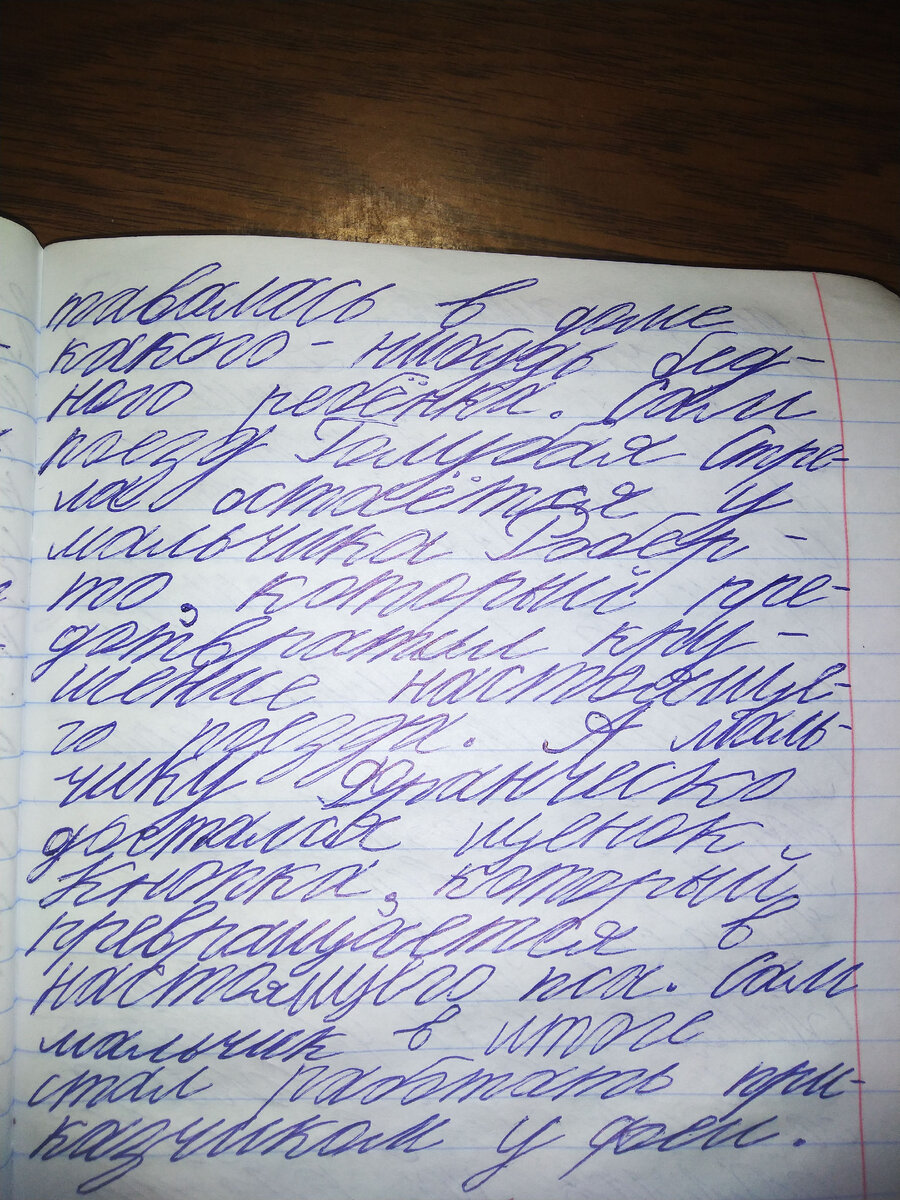 тавалась в доме
какого-нибудь бед-
ного ребёнка. Сам
поезд Голубая Стре-
ла остаётся у
мальчика Робер-
то, который пре-
дотвратил кру-
шение настояще-
го поезда. А маль-
чику Франческо
достался щенок
Кнопка, который
превращается в
настоящего пса. Сам
мальчик в итоге
стал работать при-
казчиком у феи.